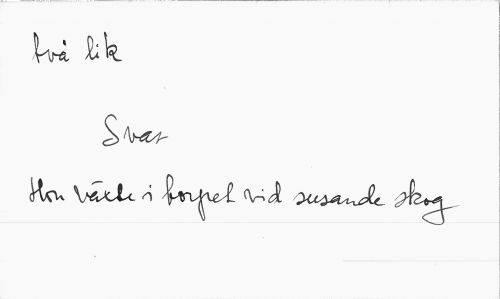 två lik
Svar
Hon växte i torpet vid susande skog